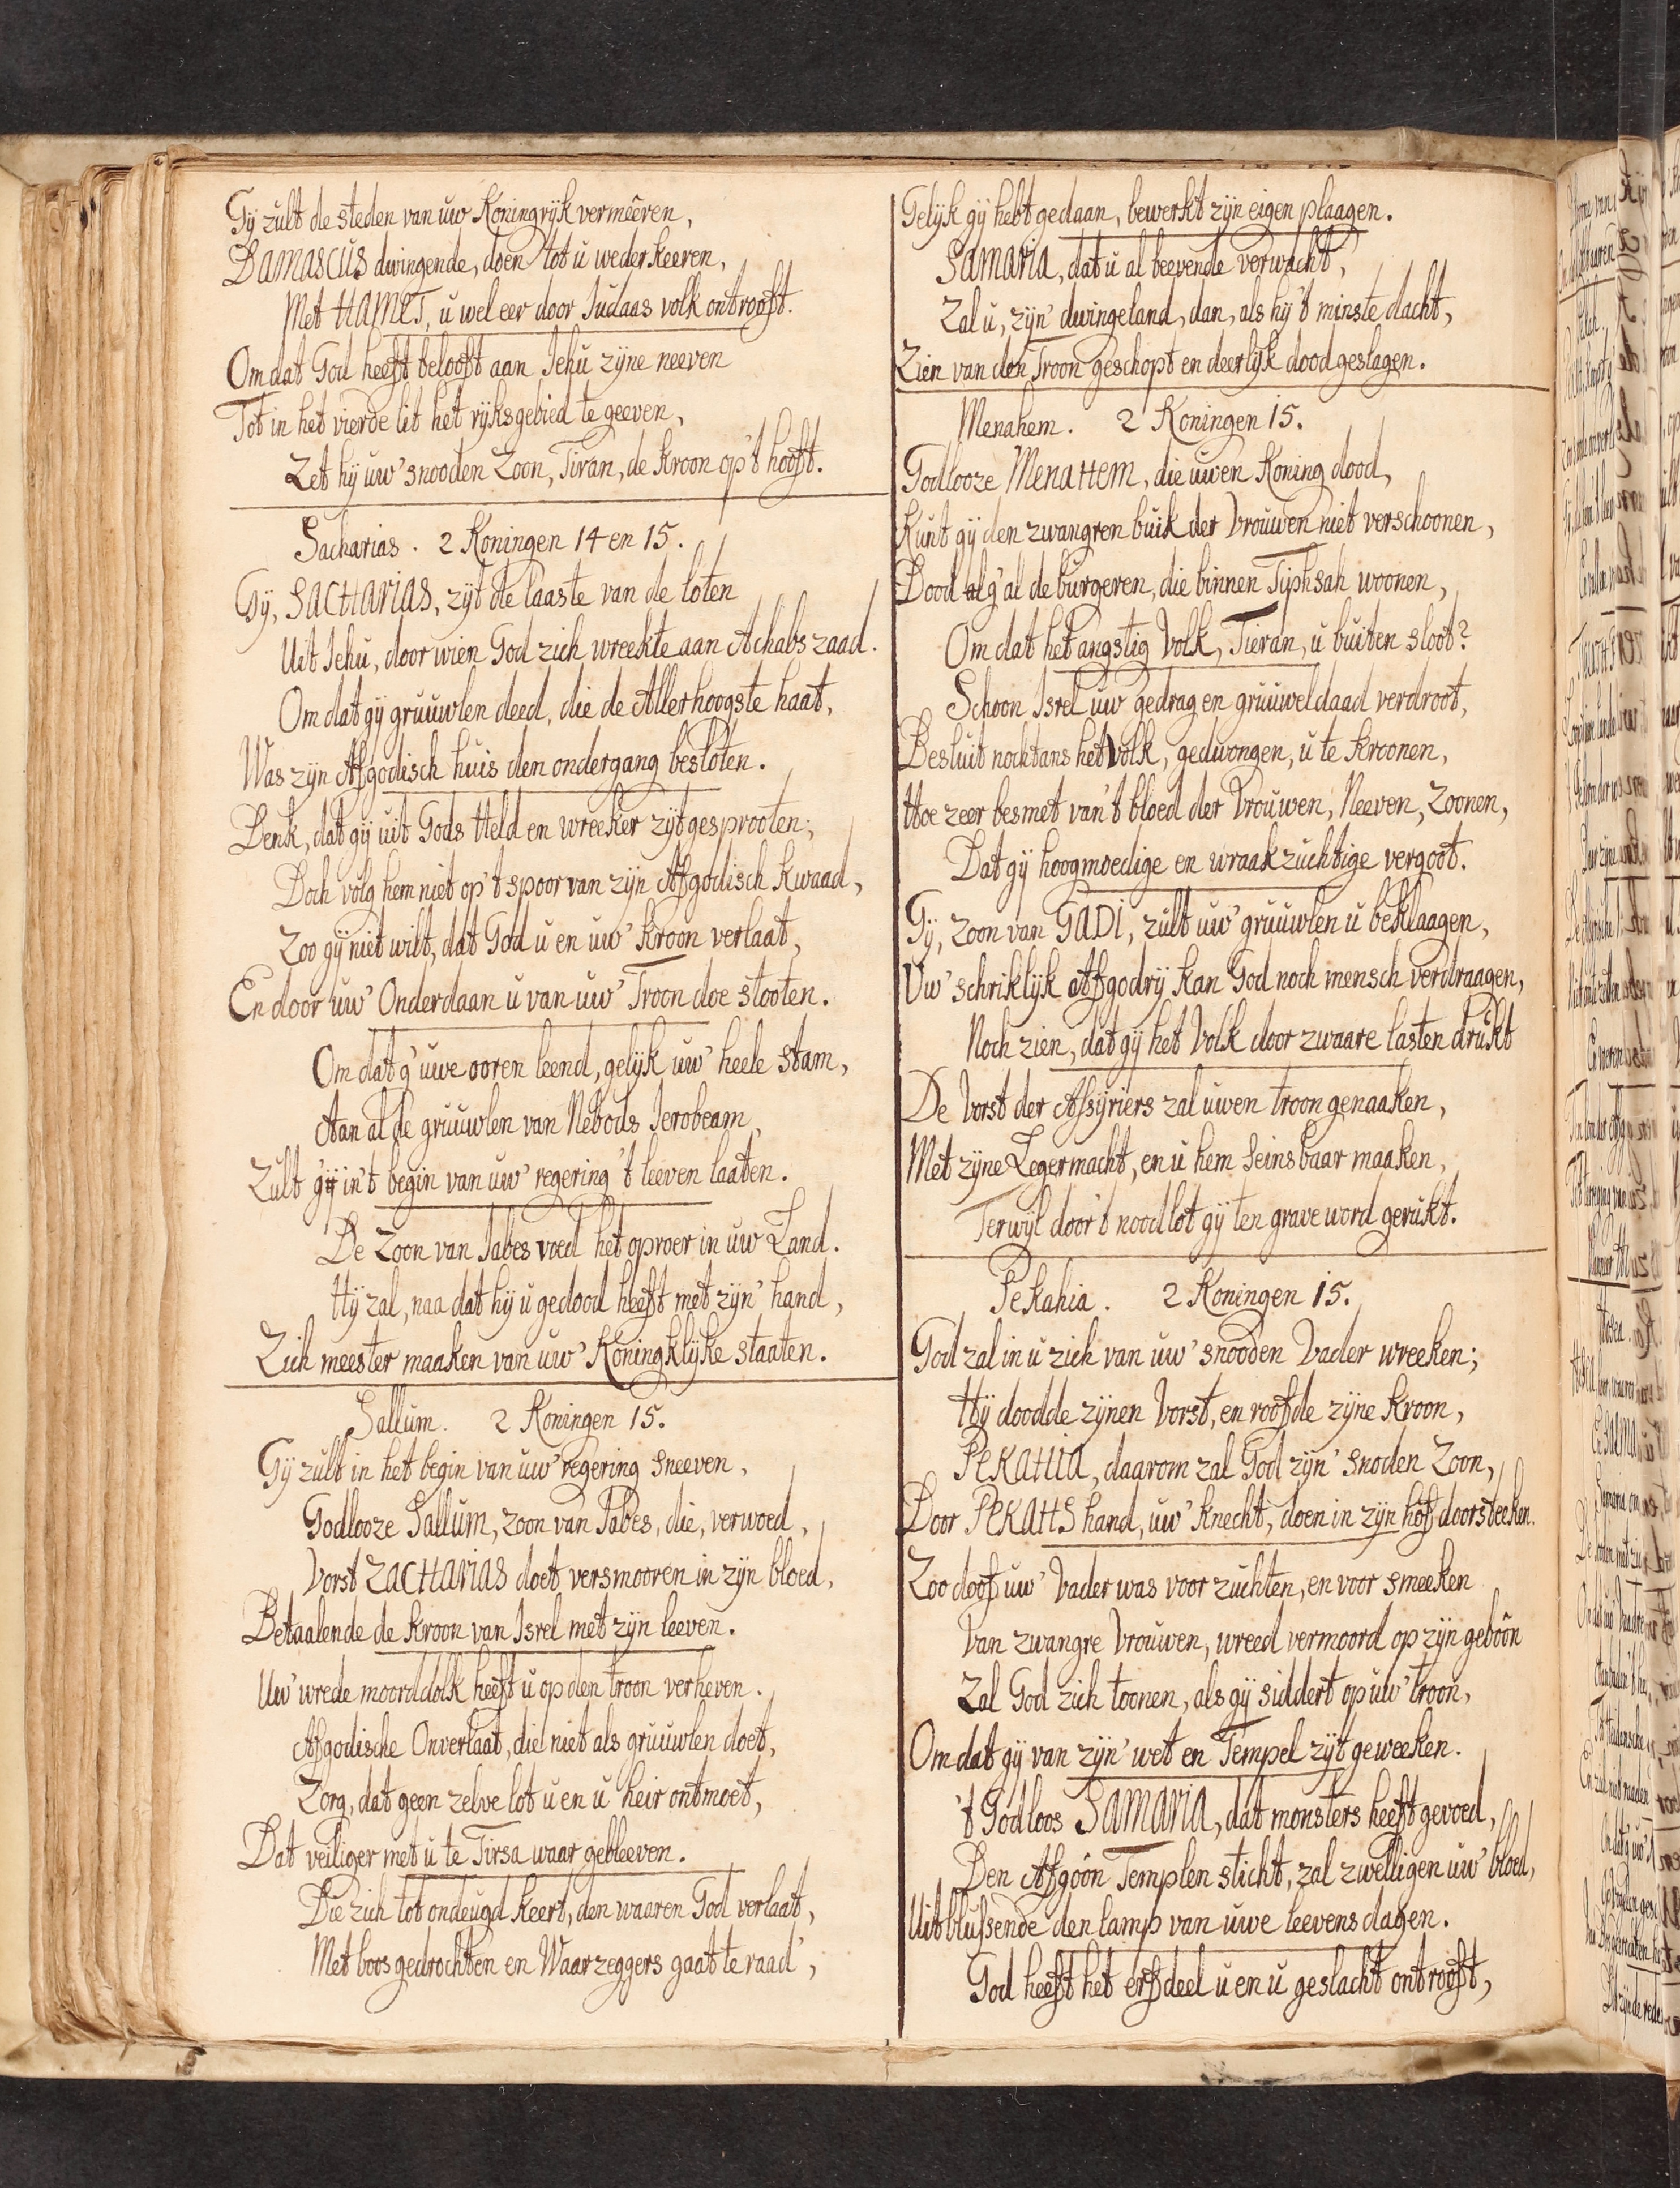 Gij zult de steden van uw Koningrijk vermeêren,
DAMASCUS dwingende, doen tot u wederkeeren,
Met HAMET, u wel eer door Judaas volk ontrooft.
Omdat God heeft belooft aan Jehu zijne neeven
Tot in het vierde lit het rijksgebied te geeven,
Zet hij uw' snooden Zoon, Tiran, de kroon op 't hooft.
Sacharias. 2 Koningen 14 en 15.
Gij, SACHARIAS, zijt de laaste van de loten
Uit Jehu, door wien God zich wreekte aan Achabs zaad.
Om dat gij gruuwlen deed, die de Allerhoogste haat,
Was zijn Afgodisch huis den ondergang besloten.
Denk, dat gij uit Gods Held en wreeker zijt gesprooten;
Doch volg hem niet op 't spoor van zijn Afgodisch kwaad,
Zoo gij niet wilt, dat God u en uw' kroon verlaat,
En door uw' Onderdaan u van uw' Troon doe stooten.
Om dat g' uwe ooren leend, gelijk uw' heele stam,
Aan al de gruuwlen van Nebods Jerobeam,
Zult gij in 't begin van uw' regering 't leeven laaten.
De Zoon van Jabes voed het oproer in uw Land.
Hij zal, naa dat hij u gedood heeft met zijn' hand,
Zich meester maaken van uw' Koningklijke staaten.
Sallum. 2 Koningen 15.
Gij zult in het begin van uw' regering sneeven,
Godlooze Sallum, zoon van Jabes, die, verwoed,
Vorst ZACHARIAS doet versmooren in zijn bloed,
Betaalende de kroon van Isrel met zijn leeven.
Uw' wrede moorddolk heeft u op den troon verheven.
Afgodische Onverlaat, die niet als gruuwlen doet,
Zorg, dat geen zelve lot u en u heir ontmoet,
Dat veiliger met u te Tirsa waar gebleeven.
Die zich tot ondeugd keert, den waaren God verlaat,
Met boos gedrochten en Waarzeggers gaat te raad',
Gelijk gij hebt gedaan, bewerkt zijn eigen plaagen.
SAMARIA, dat u al beevende verwacht,
Zal u, zijn' dwingeland, dan, als hij 't minste dacht,
Zien van den Troon geschopt en deerlijk dood geslagen.
Menahem. 2 Koningen 15.
Godlooze MENAHEM, die uwen Koning dood,
Kunt gij den zwangren buik der Vrouwen niet verschoonen,
Dood g' al de burgeren, die binnen Tiphsah woonen,
Om dat het angstig Volk, Tieran, u buiten sloot?
Schoon Isrel uw gedrag en gruuweldaad verdroot,
Besluit nochtans het Volk, gedwongen, u te kroonen,
Hoe zeer besmet van 't bloed der Vrouwen, Neeven, Zoonen,
Dat gij hoogmoedige en wraakzuchtige vergoot.
Gij, zoon van GADI, zult uw' gruuwlen u beklaagen,
Uw' schriklijk Afgodrij kan God noch mensch verdraagen,
Noch zien, dat gij het Volk door zwaare lasten drukt
De Vorst der Assyriers zal uwen troon genaaken,
Met zijne Legermacht, en u hem seinsbaar maaken,
Terwijl door 't noodlot gij ten grave word gerukt.
Pekahia. 2 Koningen 15.
God zal in u zich van uw' snooden Vader wreeken;
Hij doodde zijnen Vorst, en roofde zijne kroon,
PEKAHIA, daarom zal God zijn' snoden Zoon,
Door PEKAHS hand, uw' knecht, doen in zijn hof doorsteeken.
Zoo doof uw' Vader was voor zuchten, en voor smeeken
Van zwangre Vrouwen, wreed vermoord op zijn geboôn
Zal God zich toonen, als gij siddert op uw' troon,
Om dat gij van zijn' wet en Tempel zijt geweeken.
't Godloos SAMARIA, dat monsters heeft gevoed,
Den Afgoôn Templen sticht, zal zwelligen uw' bloed,
Uitblussende den lamp van uwe leevens dagen.
God heeft het erfdeel u en u geslacht ontrooft,